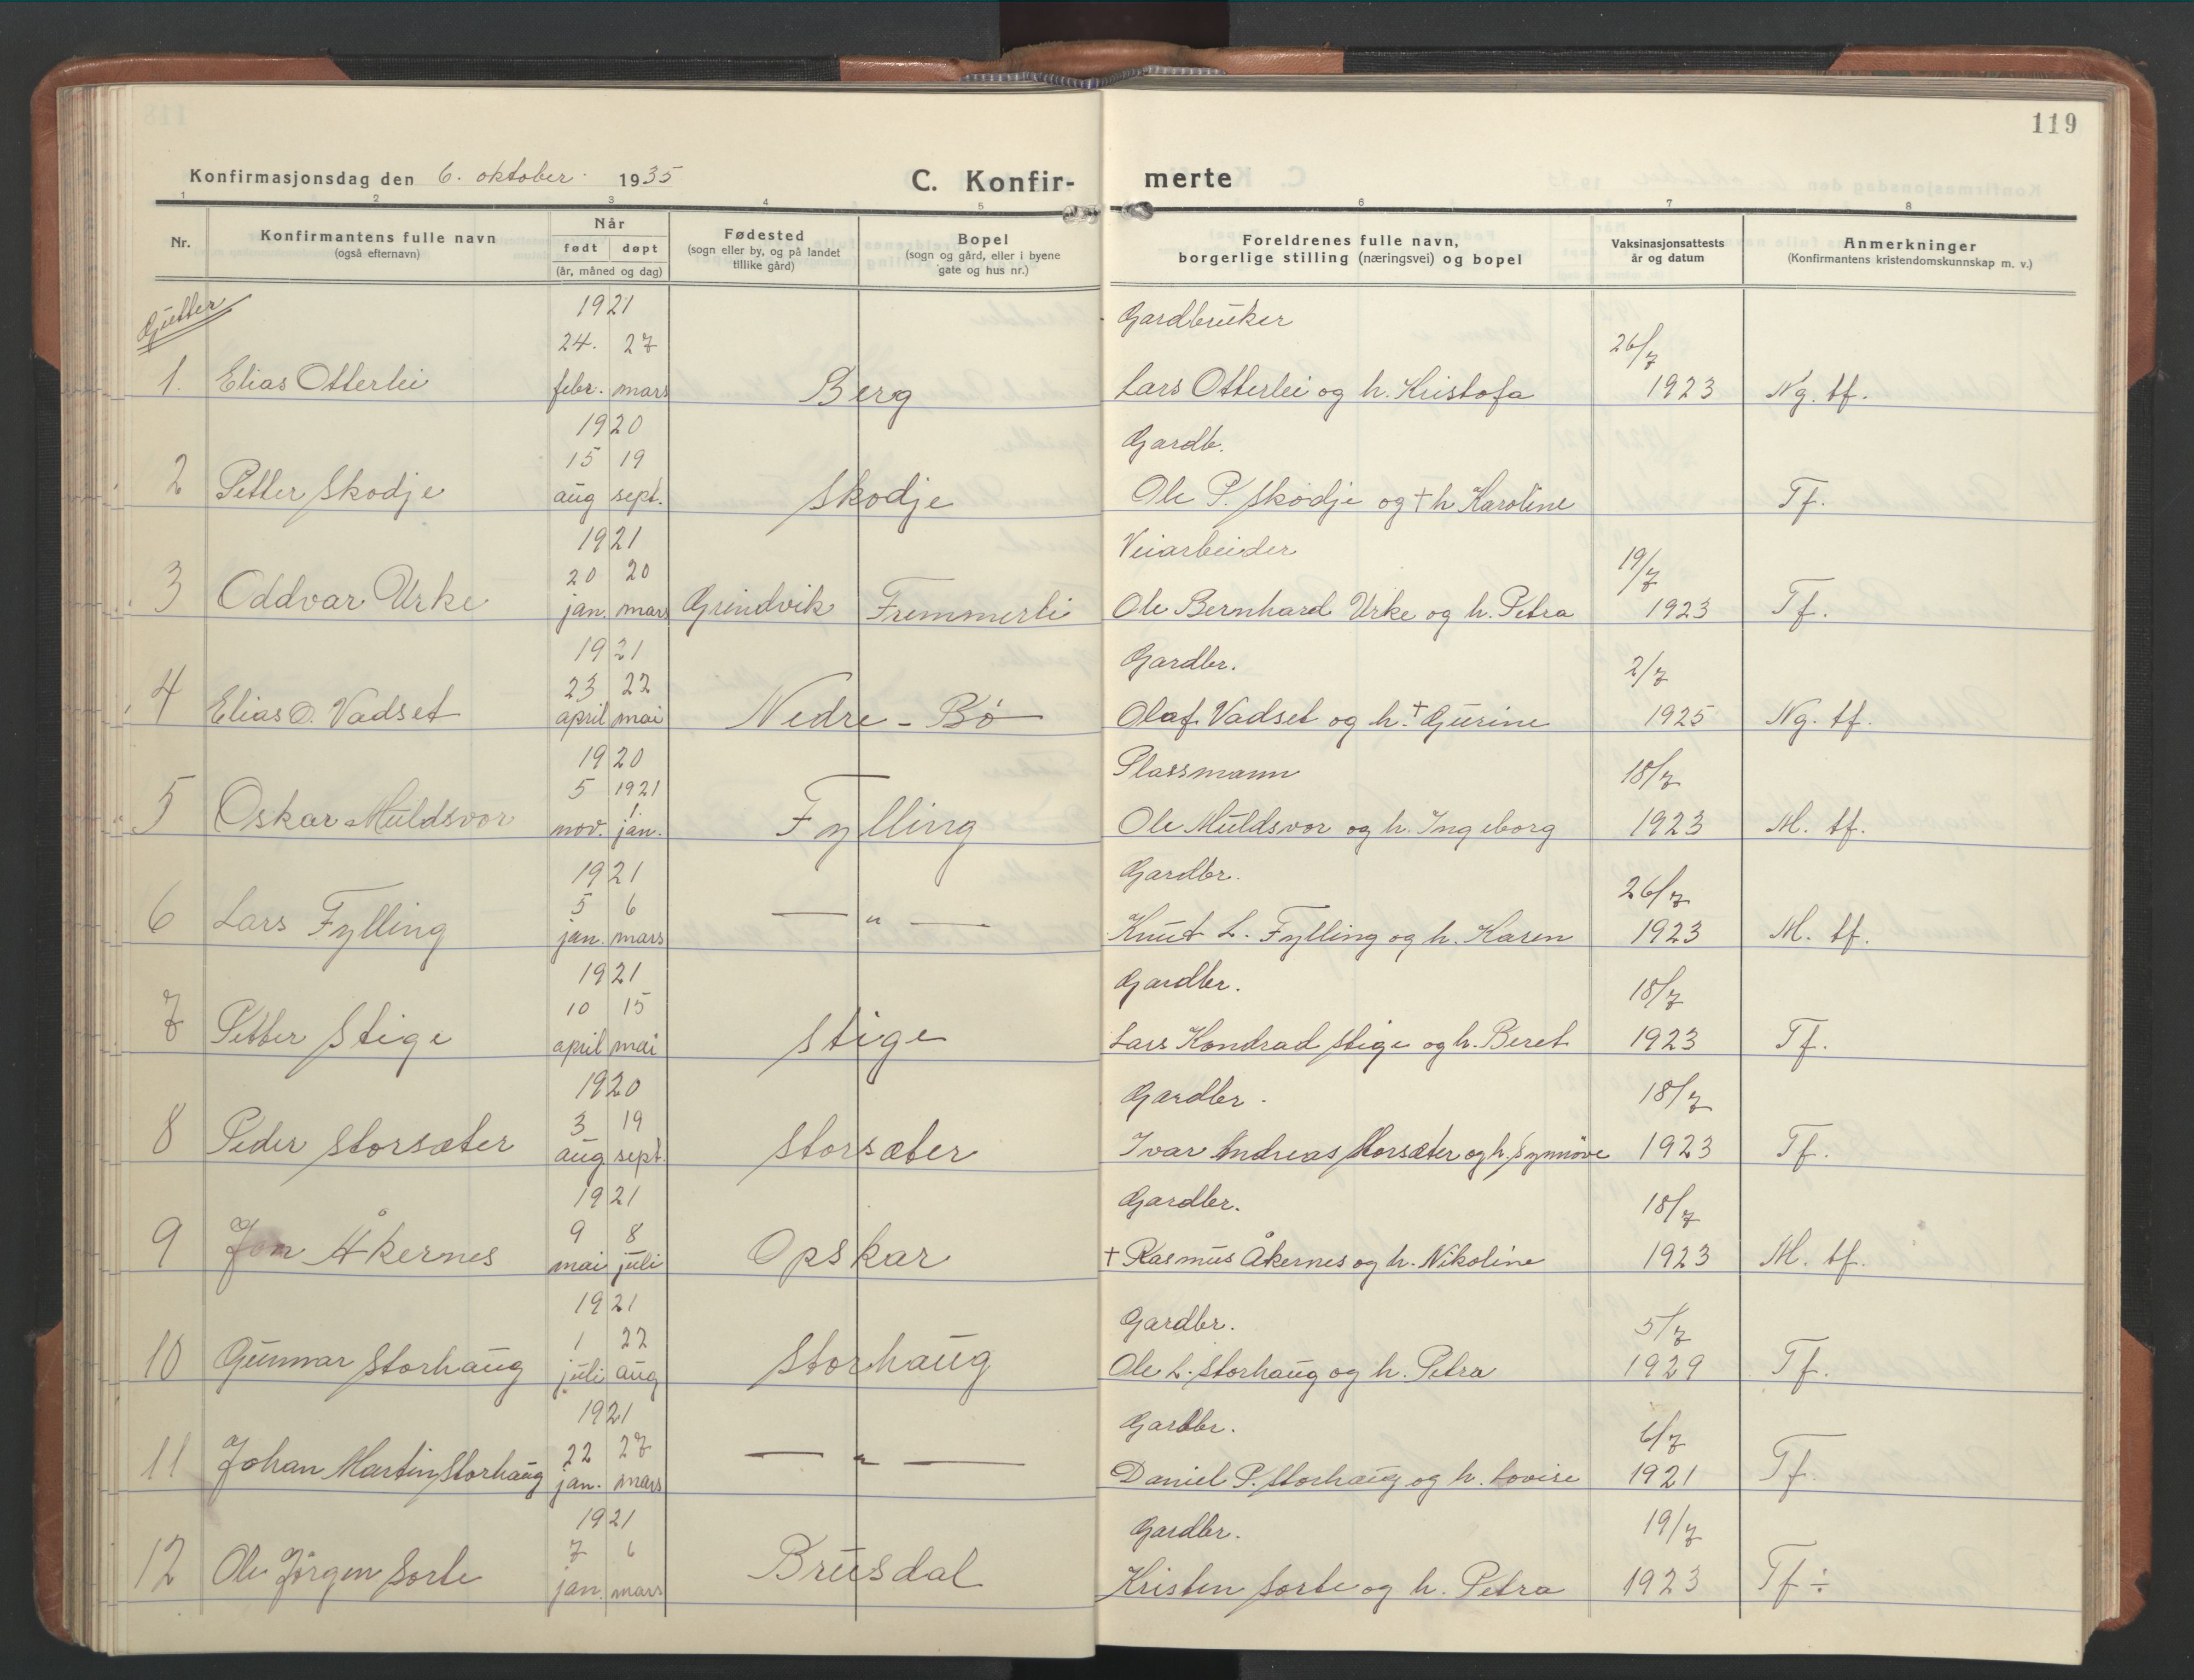 119
Konfirmasjonsdag den 6. oktober 1935
C. Konfir- merte
1 2 3 4 5 6 7 8
Nr.
Konfirmantens fulle navn
(også efternavn)
Når
født døpt
(år, måned og dag)
Fødested
(sogn eller by, og på landet
tillike gård)
Bopel
(sogn og gård, eller i byene
gate og hus nr.)
Foreldrenes fulle navn,
borgerlige stilling (næringsvei) og bopel
Vaksinasjonsattests
år og datum
Anmerkninger
(Konfirmantens kristendomskunnskap m. v.)
Gutter
1921 Gardbruker
24. 27 26/7
1. Elias Otterlei febr. mars Berg Lars Otterlei og h. Kristofa 1923 Ng. tf.
1920 Gardb.
15 19
2 Petter Skodje aug sept. Skodje Ole P. Skodje og + h Karoline Tf.
1921 Veiarbeider
20 20 19/7
3 Oddvar Urke jan. mars Grindvik Fremmerli Ole Bernhard Urke og h. Petra 1923 Tf.
1921 Gardbr.
23 22 2/7
4 Elias O. Vadset april mai Nedre - Bö Olaf Vadset og h. + Gurine 1925 Ng. tf.
1920 Plassmann
5 1921 18/7
5 Oskar Muldsvor nov. 1 jan. Fylling Ole Muldsvor og h. Ingeborg 1923 M. tf.
1921 Gardbr.
5 6 26/7
6 Lars Fylling jan. mars — " — Knut L. Fylling og h. Karen 1923 M. tf.
1921 Gardbr.
10 15 18/7
7 Petter Stige april mai Stige Lars Kondrad Stige og h. Beret 1923 Tf.
1920 Gardbr.
3 19 18/7
8 Peder Storsæter aug sept. Storsæter Ivar Andreas Storsæter og h. Synnöve 1923 Tf.
1921 Gardbr.
9 8 18/7
9 Jon Åkernes mai juli Opskar + Rasmus Åkernes og h. Nikoline 1923 M. tf.
1921 Gardbr.
1 22 5/7
10 Gunnar Storhaug juli aug Storhaug Ole L. Storhaug og h. Petra 1929 Tf.
1921 Gardbr.
22 27 6/7
11 Johan Martin Storhaug jan. mars — " — Daniel P. Storhaug og h. Lovise 1921 Tf.
1921 Gardbr.
7 6 19/7
12 Ole Jörgen Sorte jan. mars Brusdal Kristen Sorte og h. Petra 1923 Tf ÷